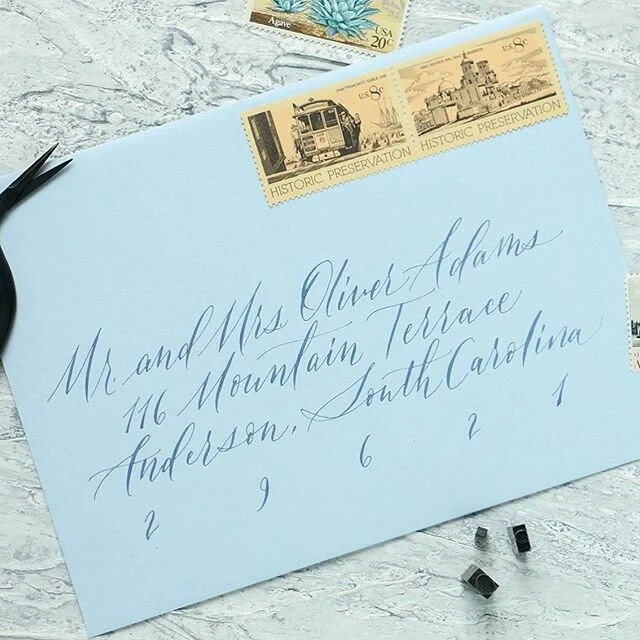 Agave
USA
20c
SAN FRANCISCO CABLE CAR
U.S. 8¢
HISTORIC PRESERVATION
U.S. 8¢
HISTORIC PRESERVATION
Mr. and Mrs Oliver Adams
116 Mountain Terrace
Anderson, South Carolina
2 9 6 2 1